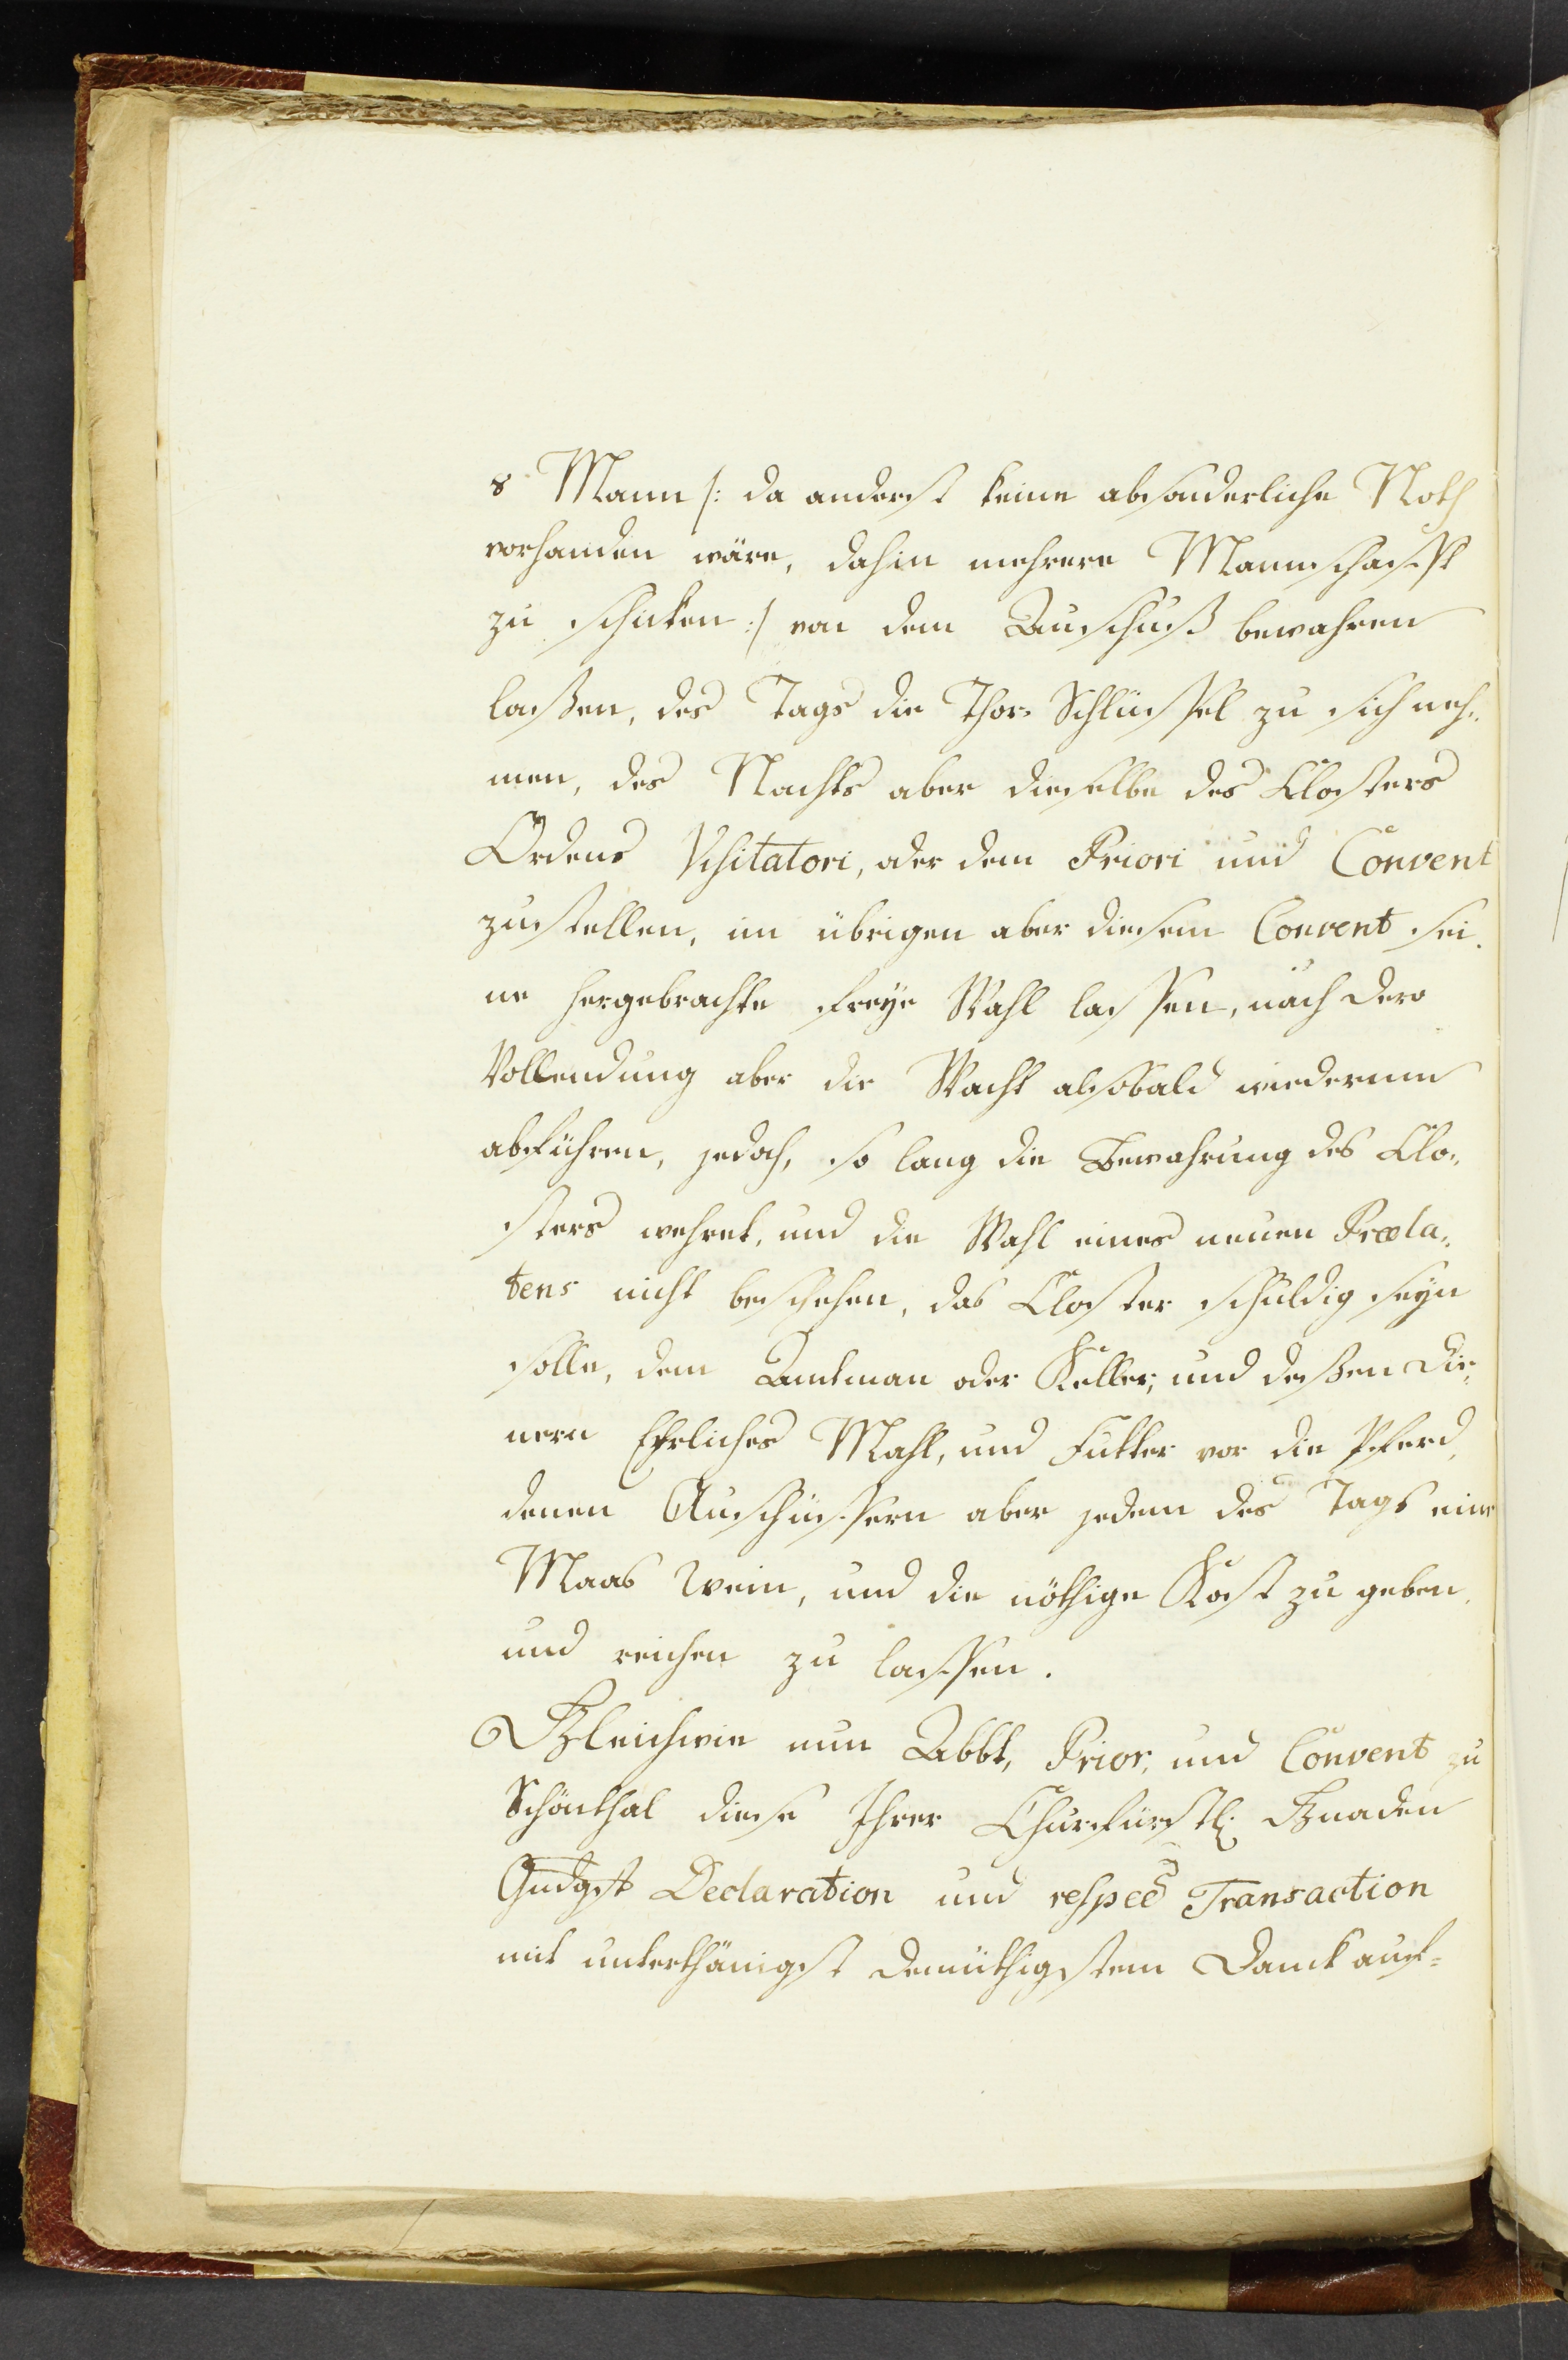 8 Mann /: da anderst keine absonderliche Noth
vorhanden wäre, dahin mehrere Mannschafft
zu schicken :/ von dem Auschuß bewahren
laßen, des Tags die Thor-Schlüssel zu sich neh-
men, des Nachts aber dieselbe des Closters
Ordens Visitatori, oder dem Priori und Convent
zustellen, im übrigen aber diesem Convent sei-
ne hergebrachte freye Wahl lassen, nach dero
Vollendung aber die Wacht alsobald wiederum
abführen, jedoch, so lang die Bewahrung des Clo-
sters wehret, und die Wahl eines neuen Præla-
tens nicht beschehen, das Closter schuldig seyn
solle, dem Amtman oder Keller, und deßen Die-
nern Ehrliches Mahl, und Futter vor die Pferd,
denen Auschüssern aber jedem des Tags eine
Maas Wein, und die nöthige Kost zu geben,
und reichen zu lassen.
Gleichwie nun Abbt, Prior, und Convent zu
Schönthal diese Ihrer Churfürstl: Gnaden
Gndgst Declaration und respec Transaction
mit unterthänigst demüthigstem Danck auf-